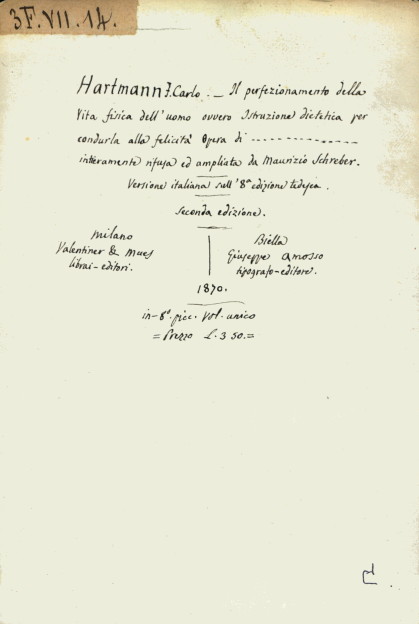 3F.VII.14.
Hartmann F. Carlo. — Il perfezionamento della
Vita fisica dell'uomo ovvero Istruzione dietetica per
condurla alla felicità Opera di - - - - - - - - - - - - - -
interamente rifusa ed ampliata da Maurizio Schreber.
Versione italiana sull'8ª edizione tedesca.
Seconda edizione.
Milano
Valentiner & Mues
librai-editori.
Biella
Giuseppe Amosso
tipografo-editore.
1870.
in-8º. picc. Vol. unico
= Prezzo L. 3 50. =